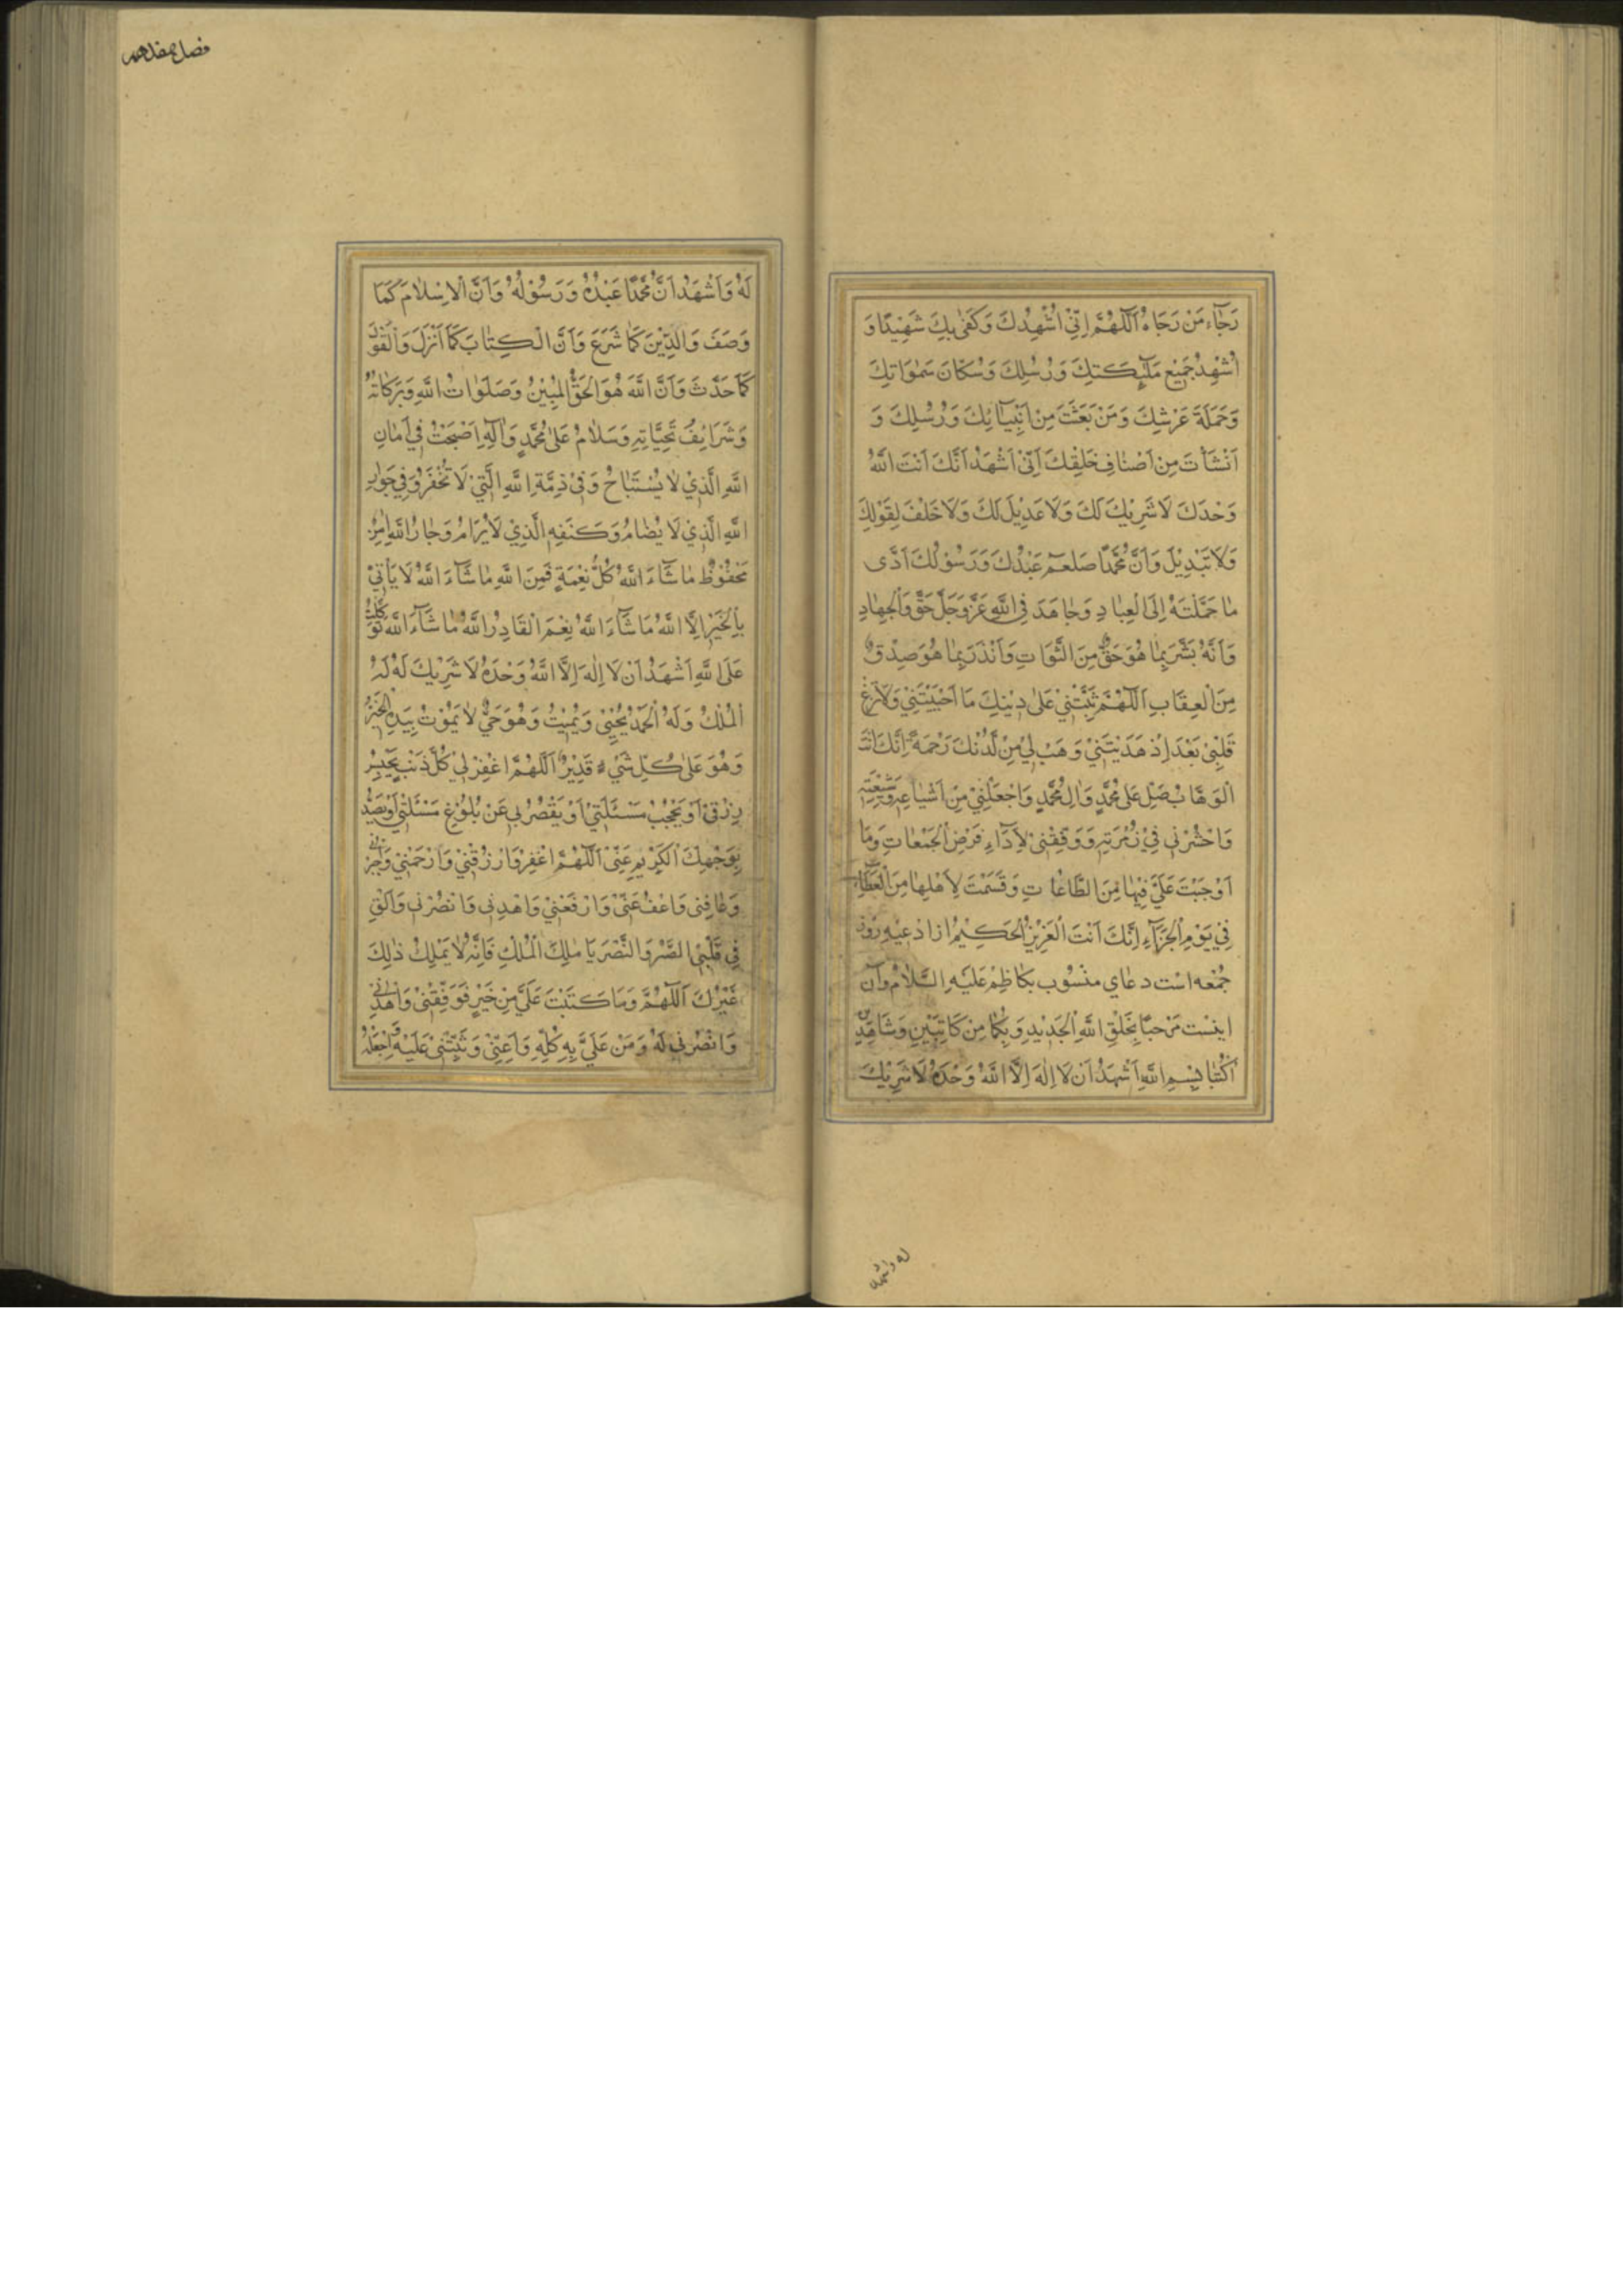 رَجَاءَ مَنْ رَجَاهُ اَللّٰهُمَّ اِنِّي اُشْهِدُكَ وَكَفٰى بِكَ شَهِيْدًا وَ
اُشْهِدُ جَمِيْعَ مَلٰٓئِكَتِكَ وَرُسُلِكَ وَسُكَّانَ سَمٰوَاتِكَ
وَحَمَلَةَ عَرْشِكَ وَمَنْ بَعَثْتَ مِنْ اَنْبِيَآئِكَ وَرُسُلِكَ وَ
اَنْشَأْتَ مِنْ اَصْنَافِ خَلْقِكَ اَنِّيْ اَشْهَدُ اَنَّكَ اَنْتَ اللّٰهُ
وَحْدَكَ لَا شَرِيْكَ لَكَ وَلَا عَدِيْلَ لَكَ وَلَا خَلْفَ لِقَوْلِكَ
وَلَا تَبْدِيْلَ وَاَنَّ مُحَمَّدًا صلعم عَبْدُكَ وَرَسُوْلُكَ اَدّٰى
مَا حَمَّلْتَهُ اِلَى الْعِبَادِ وَجَاهَدَ فِي اللّٰهِ عَزَّ وَجَلَّ حَقَّ الْجِهَادِ
وَاَنَّهُ بَشَّرَ بِمَا هُوَ حَقٌّ مِنَ الثَّوَابِ وَاَنْذَرَ بِمَا هُوَ صِدْقٌ
مِنَ الْعِقَابِ اَللّٰهُمَّ ثَبِّتْنِيْ عَلٰى دِيْنِكَ مَا اَحْيَيْتَنِيْ وَلَا تُزِغْ
قَلْبِيْ بَعْدَ اِذْ هَدَيْتَنِيْ وَهَبْ لِيْ مِنْ لَدُنْكَ رَحْمَةً اِنَّكَ اَنْتَ
الْوَهَّابُ صَلِّ عَلٰى مُحَمَّدٍ وَاٰلِ مُحَمَّدٍ وَاجْعَلْنِيْ مِنْ اَشْيَاعِهِ وَشِيْعَتِهِ
وَاحْشُرْنِي فِيْ زُمْرَتِهِ وَوَفِّقْنِيْ لِاَدَآءِ فَرْضِ الْجُمُعَاتِ وَمَا
اَوْجَبْتَ عَلَيَّ فِيْهَا مِنَ الطَّاعَاتِ وَقَسَمْتَ لِاَهْلِهَا مِنَ الْعَطَاءِ
فِيْ يَوْمِ الْجَزَآءِ اِنَّكَ اَنْتَ الْعَزِيْزُ الْحَكِيْمُ از ادعيه روز
جُمْعَه است دعاي منسوب بكاظم عَلَيْهِ السَّلَامُ وآن
اينست مَرْحَبًا بِخَلْقِ اللّٰهِ الْجَدِيْدِ وَبِكُمَا مِنْ كَاتِبَيْنِ وَشَاهِدَيْنِ
اُكْتُبَا بِسْمِ اللّٰهِ اَشْهَدُ اَنْ لَا اِلٰهَ اِلَّا اللّٰهُ وَحْدَهُ لَا شَرِيْكَ
له واشهد
فصل هفدهم
لَهُ وَاَشْهَدُ اَنَّ مُحَمَّدًا عَبْدُهُ وَرَسُوْلُهُ وَاَنَّ الْاِسْلَامَ كَمَا
وَصَفَ وَالدِّيْنَ كَمَا شَرَعَ وَاَنَّ الْكِتَابَ كَمَا اَنْزَلَ وَالْقَوْلَ
كَمَا حَدَّثَ وَاَنَّ اللّٰهَ هُوَ الْحَقُّ الْمُبِيْنُ وَصَلَوَاتُ اللّٰهِ وَبَرَكَاتُهُ
وَشَرَايِفُ تَحِيَّاتِهِ وَسَلَامُ عَلٰى مُحَمَّدٍ وَاٰلِهِ اَصْبَحْتُ فِيْ اَمَانِ
اللّٰهِ الَّذِيْ لَا يُسْتَبَاحُ وَفِيْ ذِمَّةِ اللّٰهِ الَّتِيْ لَا تُخْفَرُ وَفِيْ جَوَارِ
اللّٰهِ الَّذِيْ لَا يُضَامُ وَكَنَفِهِ الَّذِيْ لَا يُرَامُ وَجَارُ اللّٰهِ اٰمِنٌ
مَحْفُوْظٌ مَا شَآءَ اللّٰهُ كُلُّ نِعْمَةٍ فَمِنَ اللّٰهِ مَا شَآءَ اللّٰهُ لَا يَأْتِيْ
بِالْخَيْرِ اِلَّا اللّٰهُ مَا شَآءَ اللّٰهُ نِعْمَ الْقَادِرُ اللّٰهُ مَا شَآءَ اللّٰهُ تَوَكَّلْتُ
عَلَى اللّٰهِ اَشْهَدُ اَنْ لَا اِلٰهَ اِلَّا اللّٰهُ وَحْدَهُ لَا شَرِيْكَ لَهُ لَهُ
الْمُلْكُ وَلَهُ الْحَمْدُ يُحْيِيْ وَيُمِيْتُ وَهُوَ حَيٌّ لَا يَمُوْتُ بِيَدِهِ الْخَيْرُ
وَهُوَ عَلٰى كُلِّ شَيْءٍ قَدِيْرٌ اَللّٰهُمَّ اغْفِرْ لِيْ كُلَّ ذَنْبٍ يَحْبِسُ
رِزْقِيْ اَوْ يَحْجُبُ مَسْئَلَتِيْ اَوْ يَقْصُرُ بِيْ عَنْ بُلُوْغِ مَسْئَلَتِيْ اَوْ يَصُدُّ
بِوَجْهِكَ الْكَرِيْمِ عَنِّيْ اَللّٰهُمَّ اغْفِرْ وَارْزُقْنِيْ وَارْحَمْنِيْ وَاجْبُرْنِيْ
وَعَافِنِيْ وَاعْفُ عَنِّيْ وَارْفَعْنِيْ وَاهْدِنِيْ وَانْصُرْنِيْ وَاَلْقِ
فِيْ قَلْبِيَ الصَّبْرَ وَالنَّصْرَ يَا مٰلِكَ الْمُلْكِ فَاِنَّهُ لَا يَمْلِكُ ذٰلِكَ
غَيْرُكَ اَللّٰهُمَّ وَمَا كَتَبْتَ عَلَيَّ مِنْ خَيْرٍ فَوَفِّقْنِيْ وَاهْدِنِيْ
وَانْصُرْنِيْ لَهُ وَمُنَّ عَلَيَّ بِهِ كُلِّهِ وَاَعِنِّيْ وَثَبِّتْنِيْ عَلَيْهِ وَاجْعَلْهُ